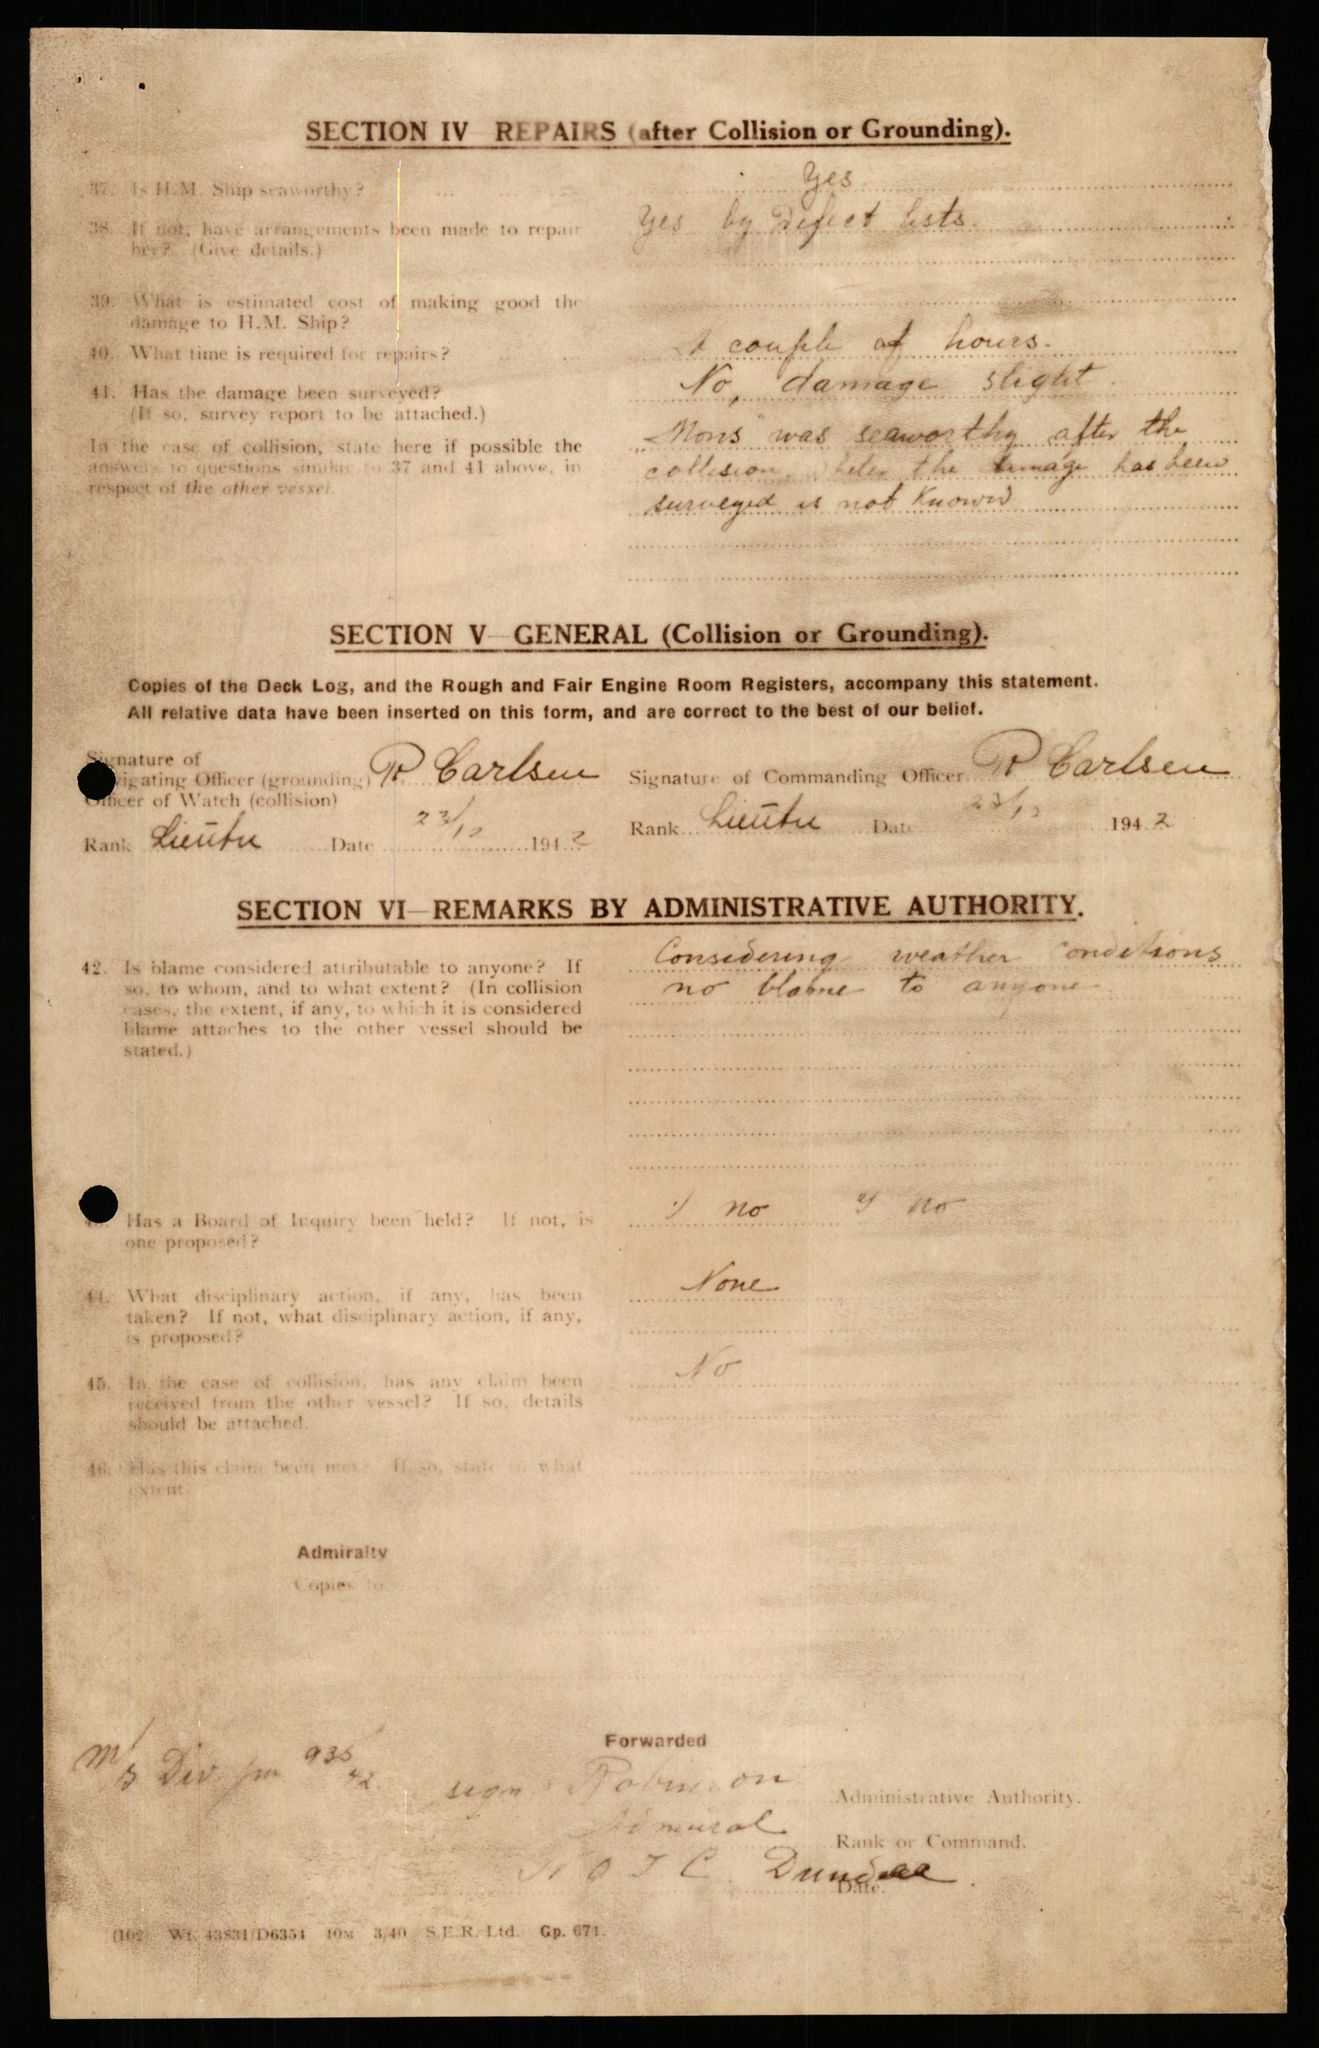 SECTION IV REPAIRS (after Collision or Grounding).
37. Is H.M. Ship seaworthy? Yes
38. If not, have arrangements been made to repair her? (Give details.)
Yes by Defect lists.
39. What is estimated cost of making good the
damage to H.M. Ship?
40. What time is required for repairs? A couple of hours.
41. Has the damage been surveyed? No, damage slight.
(If so, survey report to be attached.)
In the case of collision, state here if possible the
answers to questions similar to 37 and 41 above, in
respect of the other vessel.
"Mons" was seaworthy after the
collision. the damage has been
surveyed is not known
SECTION V—GENERAL (Collision or Grounding).
Copies of the Deck Log, and the Rough and Fair Engine Room Registers, accompany this statement.
All relative data have been inserted on this form, and are correct to the best of our belief.
Signature of
vigating Officer (grounding) Carlsen
Officer of Watch (collision)
Signature of Commanding Officer Carlsen
Rank Lieutn Date 23/12 1942
Rank Lieutn Date 23/12 1942
SECTION VI—REMARKS BY ADMINISTRATIVE AUTHORITY.
42. Is blame considered attributable to anyone? If
so, to whom, and to what extent? (In collision
cases, the extent, if any, to which it is considered
blame attaches to the other vessel should be
stated.)
Considering weather conditions
no blame to anyone
Has a Board of Inquiry been held? If not, is
one proposed?
1) no 2) no
44. What disciplinary action, if any, has been
taken? If not, what disciplinary action, if any,
is proposed?
None
45. In the case of collision, has any claim been
received from the other vessel? If so, details
should be attached.
No
46. Has this claim been met? If so, state to what
extent.
Admiralty
Copies to
Forwarded
M/S Div jnr 935/42
sign. Robinson Administrative Authority.
Admiral Rank or Command.
N O I C Dundee Date.
(102) Wt. 43831/D6354 40M 3/40 S.E.R. Ltd. Gp. 671.